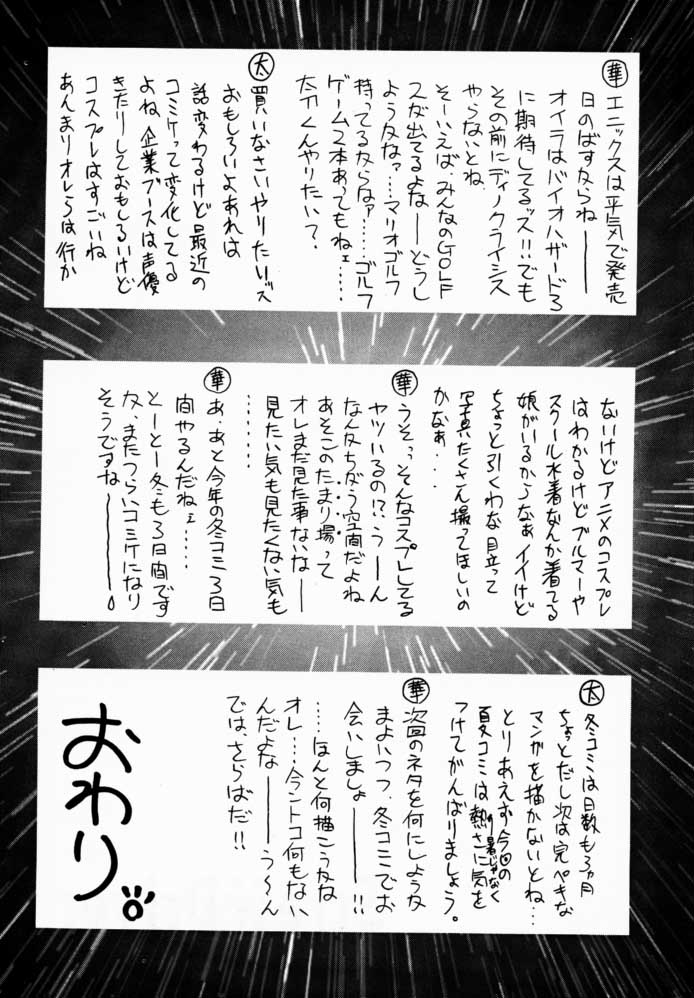 華 エニックスは平気で発売
日のばすからねーー
オイラはバイオハザード3
に期待してるッス!!でも
その前にディノクライシス
やらないとね、
そーいえば、みんなのGOLF
2が出てるよなーどうし
ようかなァ…マリオゴルフ
持ってるからなァ……ゴルフ
ゲーム2本あってもねェ……
太刀くんやりたい?
太 買いなさいやりたいッス
おもしろいよあれは
話変わるけど最近の
コミケって変化してる
よね、企業ブースは声優
きたりしておもしろいけど
コスプレはすごいね
あんまりオレらは行か
ないけどアニメのコスプレ
はわかるけどブルマーや
スクール水着なんか着てる
娘がいるからなぁイイけど
ちょっと引くわな目立って
写真たくさん撮ってほしいの
かなぁ・・・
華 うそっっそんなコスプレしてる
ヤツいるの!?うーん
なんかちがう空間だよね
あそこのたまり場って
オレまだ見た事ないなー
見たい気も見たくない気も
・・・・・・
華 あ、あと今年の冬コミ3日
間やるんだねェ……
とーとー冬も3日間です
か、またつらいコミケになり
そうですなーー。
太 冬コミは日数も3ヵ月
ちょっとだし次は完ペキな
マンガを描かないとね…
とりあえず今回の
夏コミは熱さに気を
り暑じゃなく
つけてがんばりましょう。
華 次回のネタを何にしようか
まよいつつ、冬コミでお
会いしましょーー!!
……ほんと何描こうかな
オレ…今ントコ何もない
んだよなーーう〜ん
では、さらばだ!!
おわり。